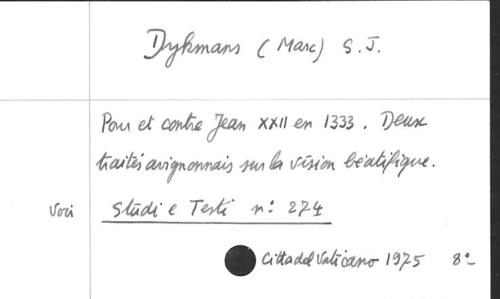 Dykmans (Marc) S.J.
Pour et contre Jean XXII en 1333. Deux
traités avignonnais sur la vision béatifique.
Voci Studi e Testi n: 274
Città del Vaticano 1975 8º